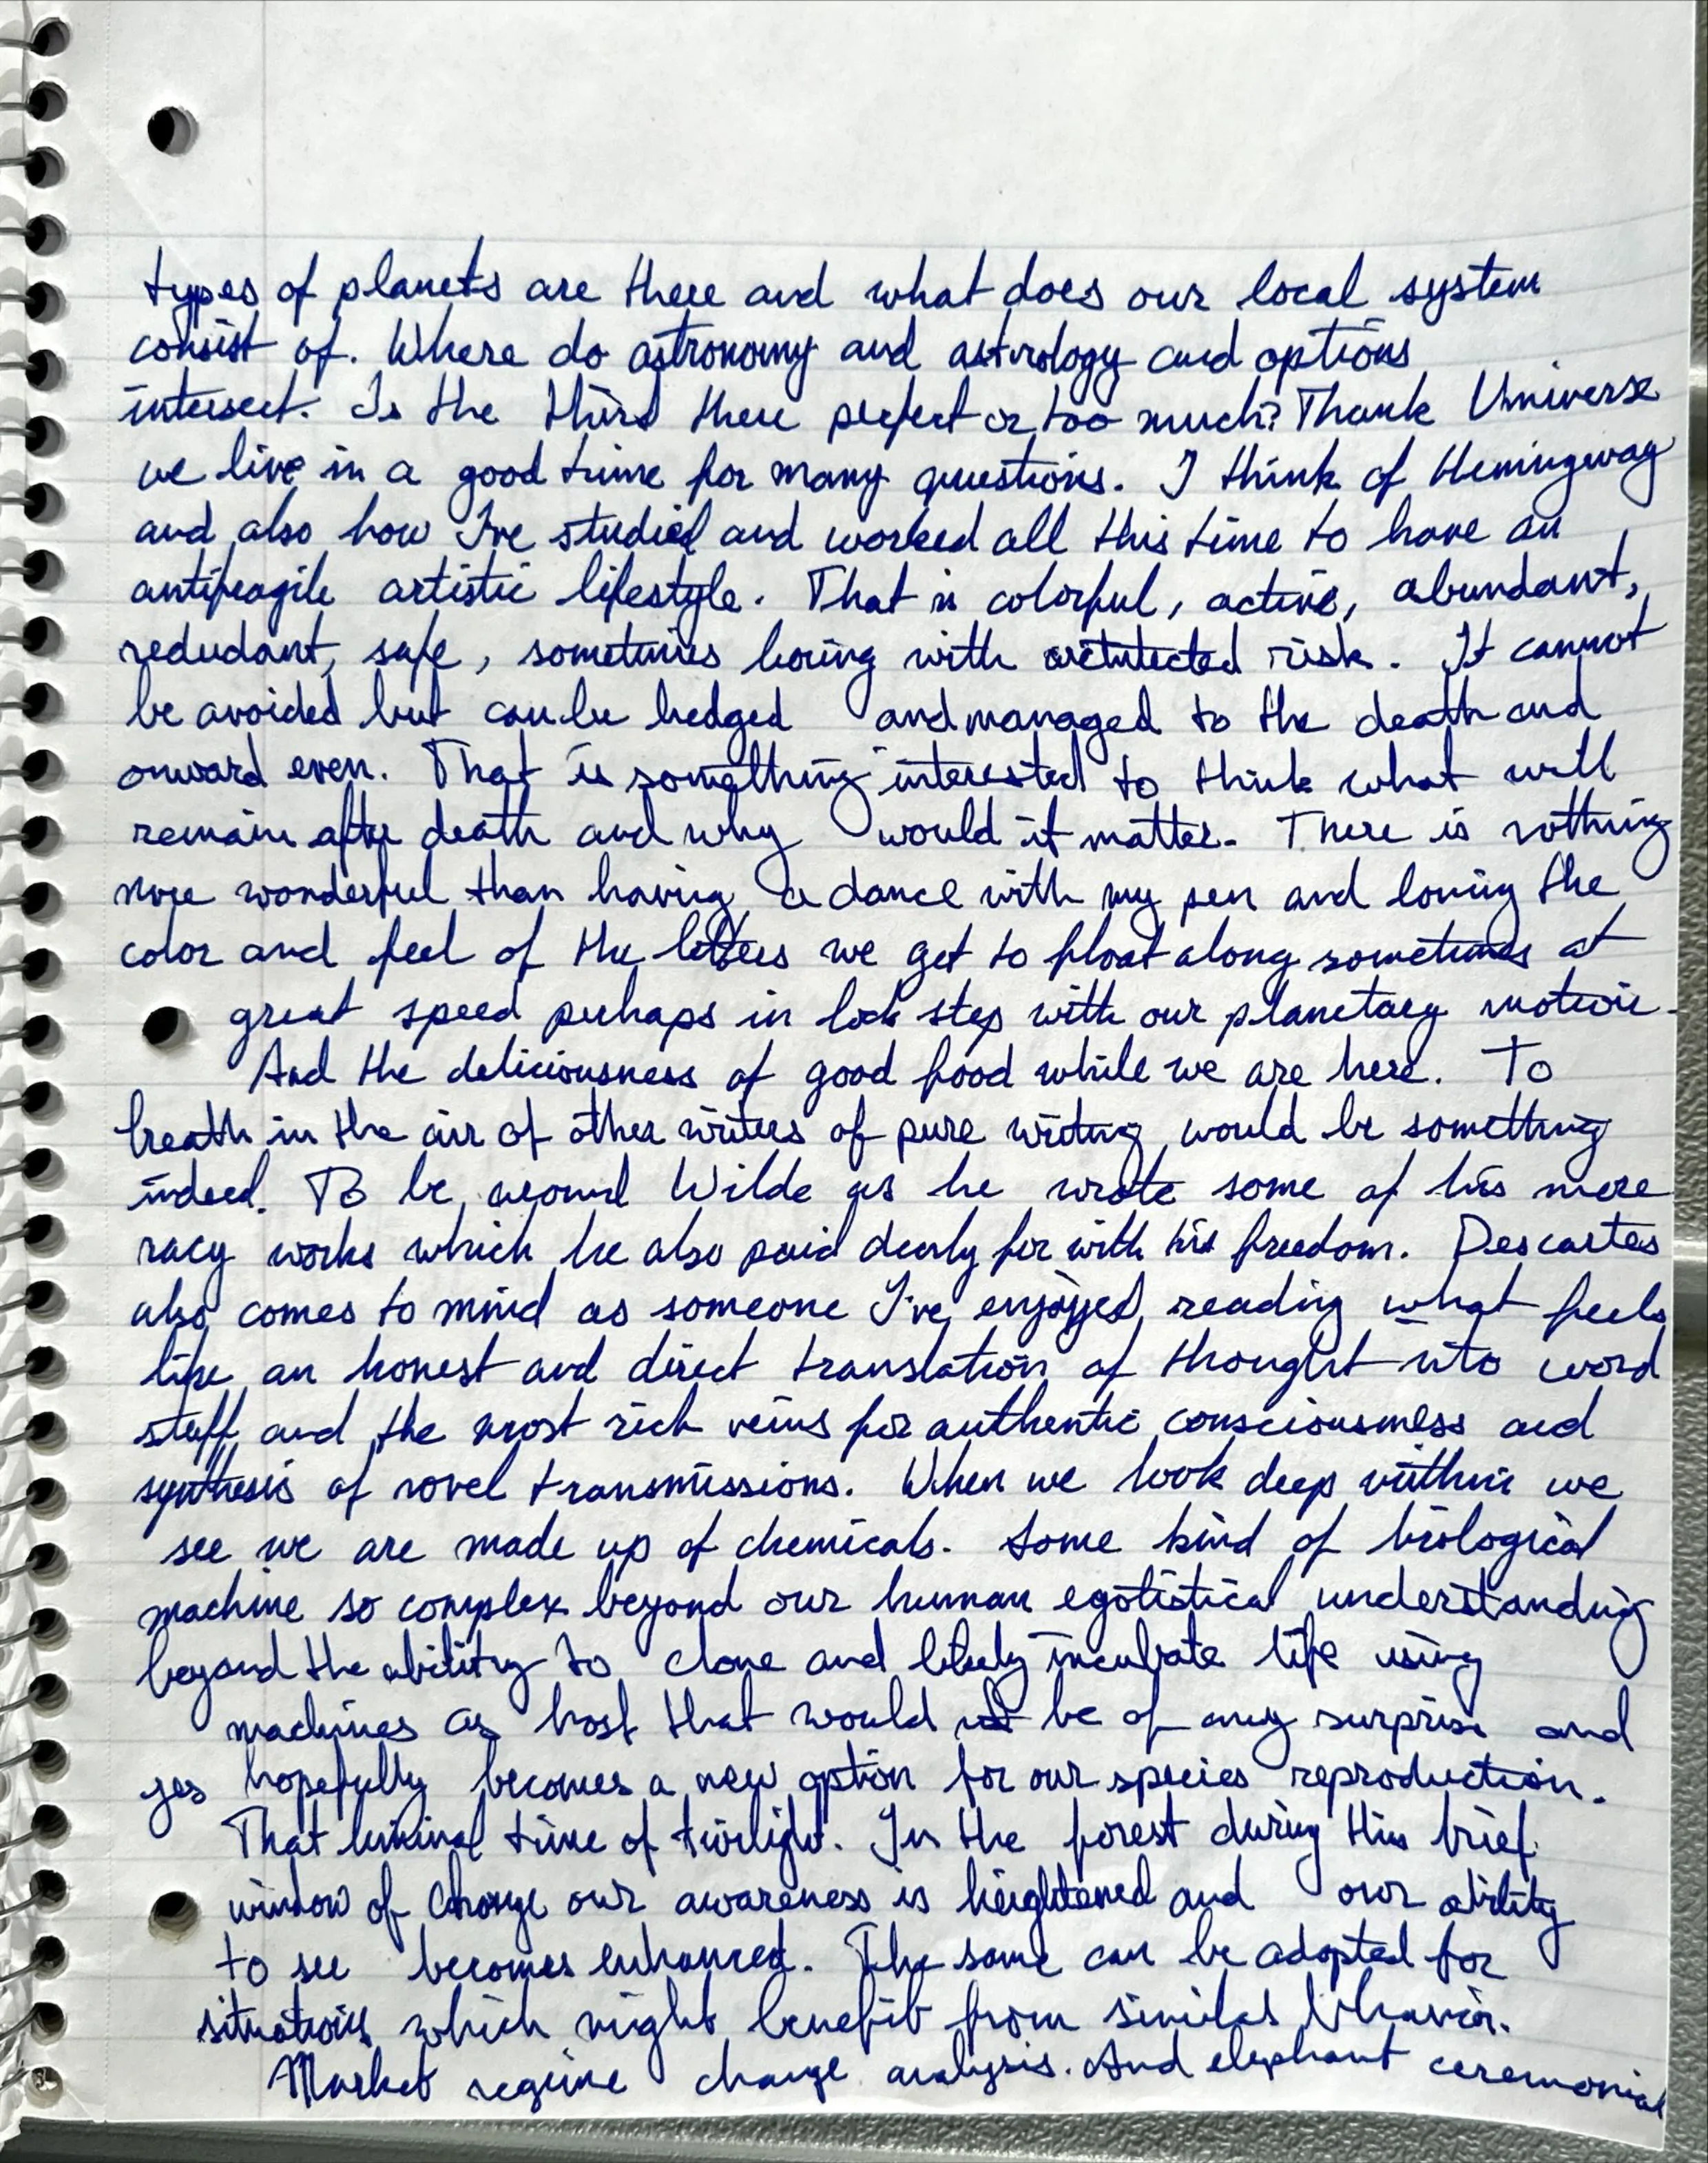 types of planets are there and what does our local system
consist of. Where do astronomy and astrology and options
intersect. Is the third there perfect or too much? Thank Universe
we live in a good time for many questions. I think of Hemingway
and also how I've studied and worked all this time to have an
antifragile artistic lifestyle. That is colorful, active, abundant,
redudant, safe, sometimes boring with architected risk. It cannot
be avoided but can be hedged and managed to the death and
onward even. That is something interested to think what will
remain after death and why would it matter. There is nothing
more wonderful than having a dance with my pen and loving the
color and feel of the letters we get to float along sometimes at
great speed perhaps in lock step with our planetary motion.
And the deliciousness of good food while we are here. To
breath in the air of other writers of pure writing would be something
indeed. To be around Wilde as he wrote some of his more
racy works which he also paid dearly for with his freedom. Descartes
also comes to mind as someone I've enjoyed reading what feels
like an honest and direct translation of thought into word
stuff and the most rich veins for authentic consciousness and
synthesis of novel transmissions. When we look deep within we
see we are made up of chemicals. Some kind of biological
machine so complex beyond our human egotistical understanding
beyond the ability to clone and likely incubate life using
machines as host that would not be of any surprise and
yes hopefully becomes a new option for our species reproduction.
That liminal time of twilight. In the forest during this brief
window of change our awareness is heightened and our ability
to see becomes enhanced. The same can be adopted for
situations which might benefit from similar behavior.
Market regime change analysis. And elephant ceremonial